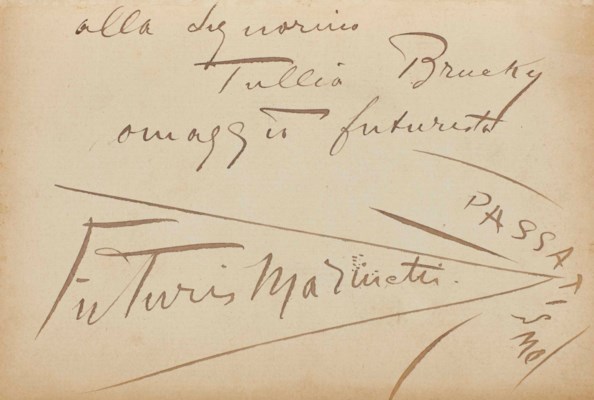 alla Signorina
Tullia Brucky
omaggio futurista
PASSATISMO
FuTurisMarinetti.